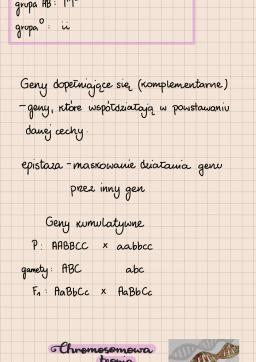 grupa AB: IᴬIᴮ
grupa 0: ii
Geny dopełniające się (komplementarne)
- geny, które współdziałają w powstawaniu
danej cechy.
epistaza - maskowanie działania genu
przez inny gen
Geny kumulatywne
P: AABBCC × aabbcc
gamety: ABC abc
F₁: AaBbCc × AaBbCc
Chromosomowa
teoria